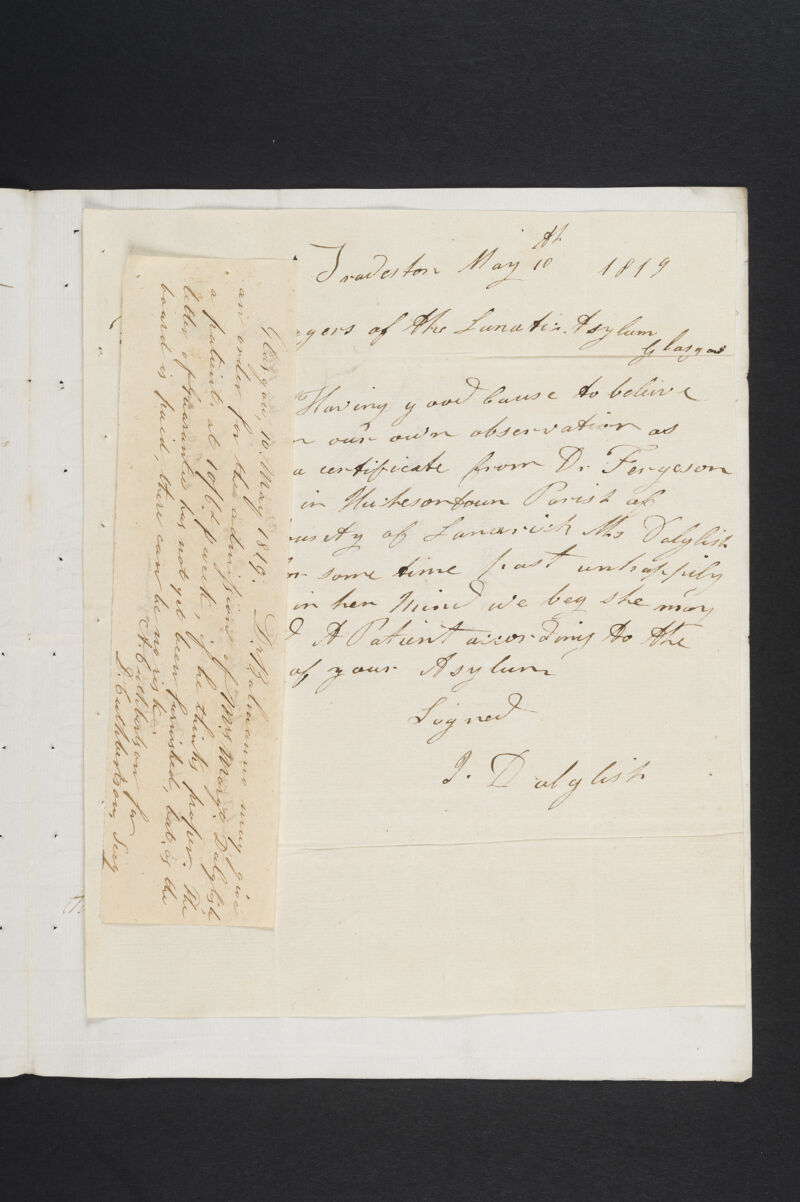 Tradeston May 10th 1819
agers of the Lunatic Asylum
Glasgow
Having good Cause to beleive
our own observation as
a certificate from Dr Fergeson
in Hutcesontoun Parish of
ounty of Lanarick Ms Dalglish
some time past unhappily
in her Mind we beg she may
A Patient according to the
of your Asylum
Signed
J. Dalglish
Glasgow 10. May 1819. Dr Balmanno may give
an order for the admission of Mrs Margt. Dalglish
a patient, at 10/6d. p week, if he thinks proper. The
letter of Guarantee has not yet been furnished, but, if the
board is paid, there can be no risk.
A Cuthbertson for
D. Cuthbertson, Secy